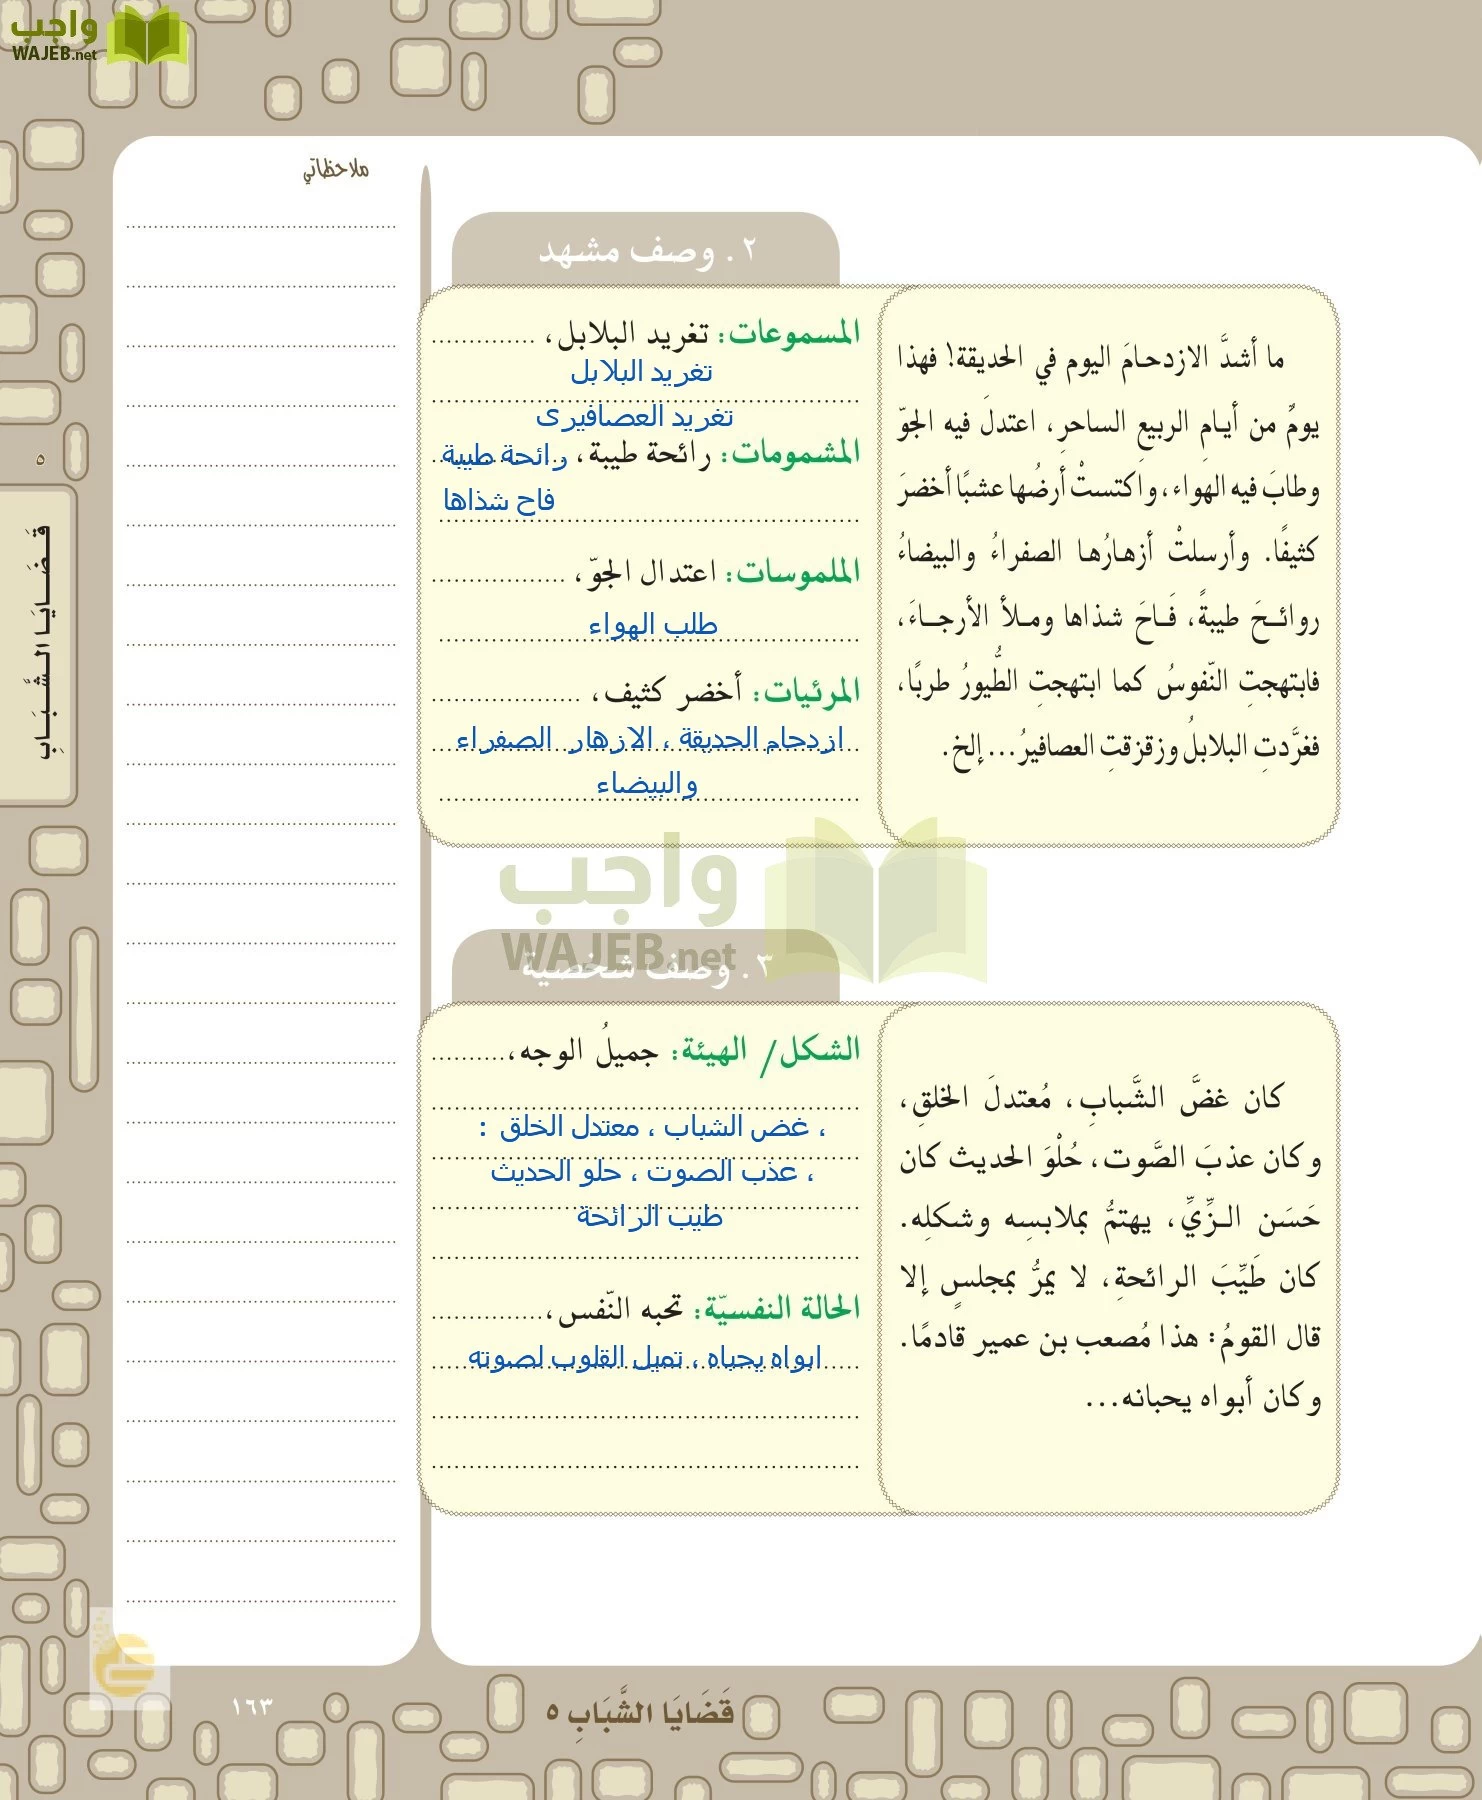 واجب
WAJEB.net
ملاحظاتي
٢. وصف مشهد
ما أشدَّ الازدحامَ اليوم في الحديقة! فهذا
يومٌ من أيامِ الربيعِ الساحرِ، اعتدلَ فيه الجوّ
وطابَ فيه الهواء، واكتستْ أرضُها عشبًا أخضرَ
كثيفًا. وأرسلتْ أزهارُها الصفراءُ والبيضاءُ
روائحَ طيبةً، فَاحَ شذاها وملأ الأرجاءَ،
فابتهجتِ النّفوسُ كما ابتهجتِ الطُّيورُ طربًا،
فغرَّدتِ البلابلُ وزقزقتِ العصافيرُ... إلخ.
المسموعات: تغريد البلابل، ..............
تغريد البلابل
تغريد العصافيرى
المشمومات: رائحة طيبة، رائحة طيبة
فاح شذاها
الملموسات: اعتدال الجوّ، ..................
طلب الهواء
المرئيات: أخضر كثيف، ....................
ازدحام الحديقة ، الازهار الصفراء
والبيضاء
واجب
WAJEB.net
٣. وصف شخصية
كان غضَّ الشَّبابِ، مُعتدلَ الخلقِ،
وكان عذبَ الصَّوت، حُلْوَ الحديث كان
حَسَن الزِّيِّ، يهتمُّ بملابسِه وشكلِه.
كان طَيِّبَ الرائحةِ، لا يمرُّ بمجلسٍ إلا
قال القومُ: هذا مُصعب بن عمير قادمًا.
وكان أبواه يحبانه...
الشكل/ الهيئة: جميلُ الوجه،..........
، غض الشباب ، معتدل الخلق :
، عذب الصوت ، حلو الحديث
طيب الرائحة
الحالة النفسيّة: تحبه النّفس،...............
ابواه يحباه ، تميل القلوب لصوته
٥
قَضَايَا الشَّبَابِ
قَضَايَا الشَّبَابِ ٥
١٦٣